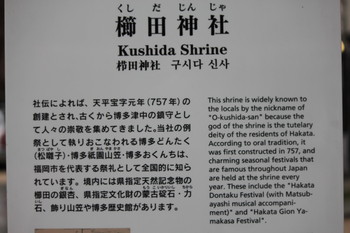 くしだじんじゃ
櫛田神社
Kushida Shrine
栉田神社 구시다 신사
社伝によれば、天平宝字元年(757年)の
創建とされ、古くから博多津中の鎮守とし
て人々の崇敬を集めてきました。当社の例
祭として執りおこなわれる博多どんたく
(松囃子)・博多祇園山笠・博多おくんちは、
福岡市を代表する祭礼として全国的に知ら
れています。境内には県指定天然記念物の
櫛田の銀杏、県指定文化財の蒙古碇石・力
石、飾り山笠や博多歴史館があります。
This shrine is widely known to the
locals by the nickname of
"O-kushida-san" because the
god of the shrine is the tutelary
deity of the residents of Hakata.
According to oral tradition, it
was first constructed in 757, and
charming seasonal festivals that
are famous throughout Japan
are held at the shrine every
year. These include the "Hakata
Dontaku Festival (with Matsub-
yashi musical accompani-
ment)" and "Hakata Gion Ya-
makasa Festival."